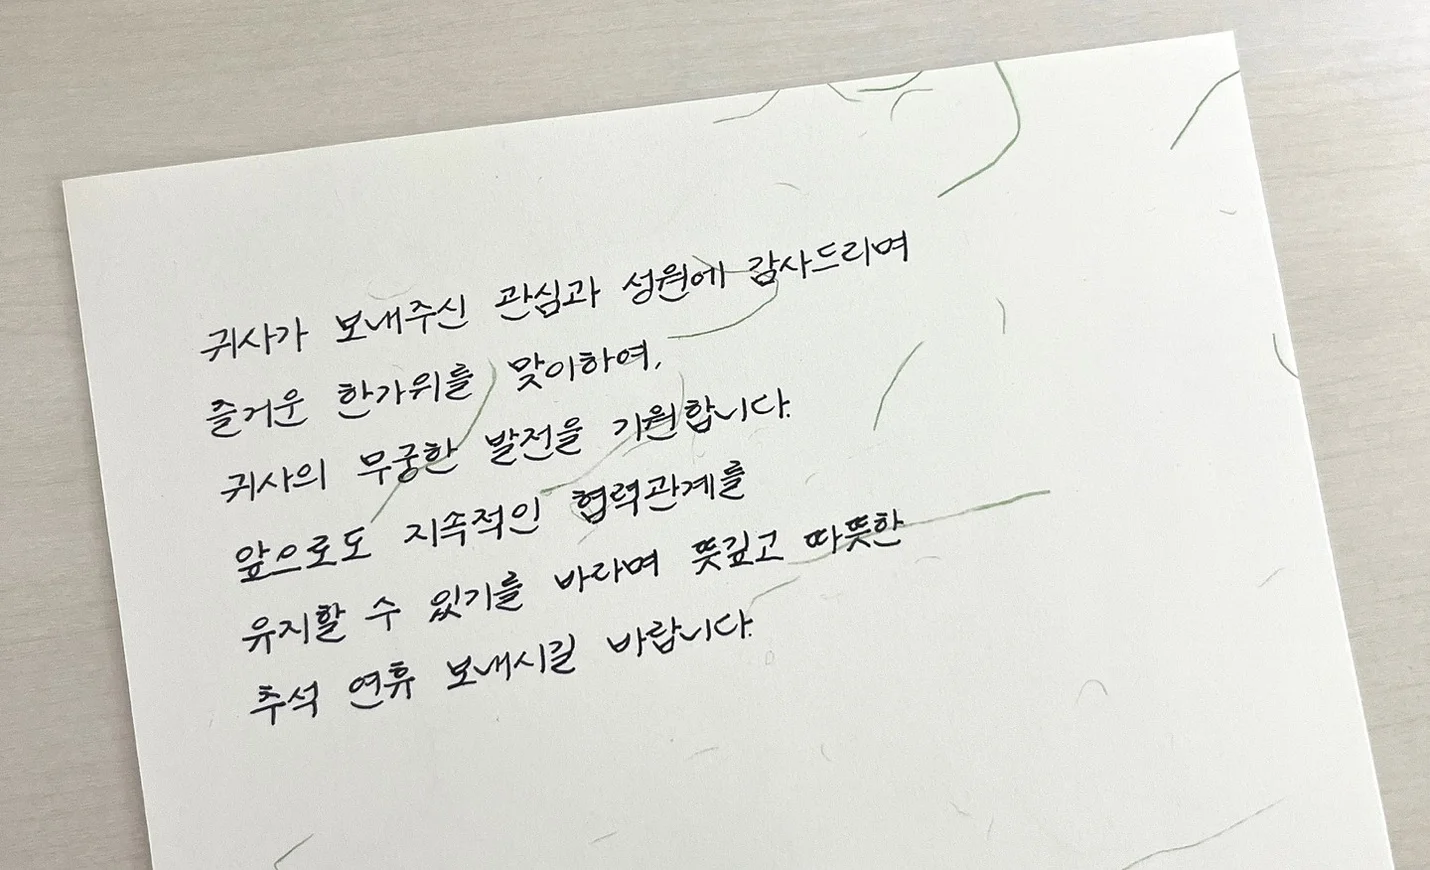 귀사가 보내주신 관심과 성원에 감사드리며
즐거운 한가위를 맞이하여,
귀사의 무궁한 발전을 기원합니다.
앞으로도 지속적인 협력관계를
유지할 수 있기를 바라며 뜻깊고 따뜻한
추석 연휴 보내시길 바랍니다.